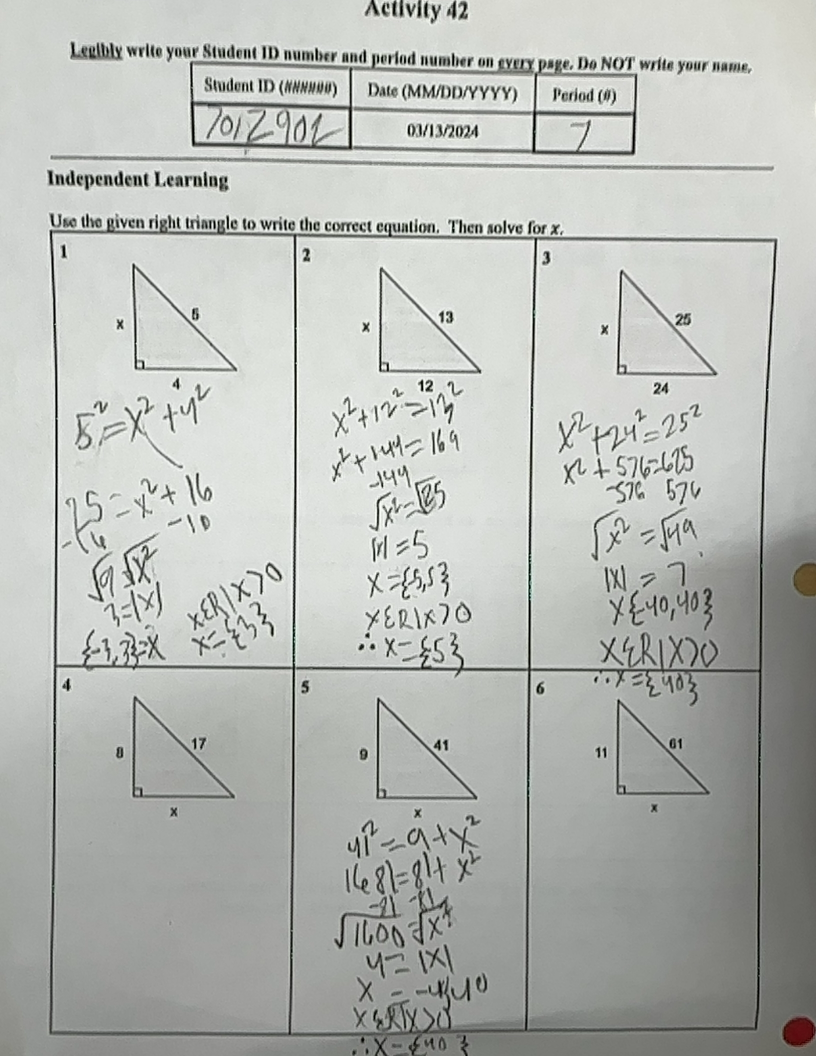 Activity 42
Legibly write your Student ID number and period number on every page. Do NOT write your name.
Student ID (######) Date (MM/DD/YYYY) Period (#)
7012902 03/13/2024 7
Independent Learning
Use the given right triangle to write the correct equation. Then solve for x.
1
x 5
4
5² = x² + 4²
25 = x² + 16
-16 -10
√9 √x²
3 = |x|
{-3, 3} = x
xER|x>0
x = {3}
2
x 13
12
x² + 12² = 13²
x² + 144 = 169
-144
√x² = √25
|x| = 5
x = {-5,5}
xER|x>0
∴ x = {5}
3
x 25
24
x² + 24² = 25²
x² + 576 = 625
-576 576
√x² = √49
|x| = 7
x{-40,40}
xER|x>0
∴ x = {40}
4
8 17
x
5
9 41
x
41² = 9 + x²
1681 = 81 + x²
-81 -81
√1600 = √x²
4 = |x|
xER|x>0
∴ x = {40}
6
11 61
x